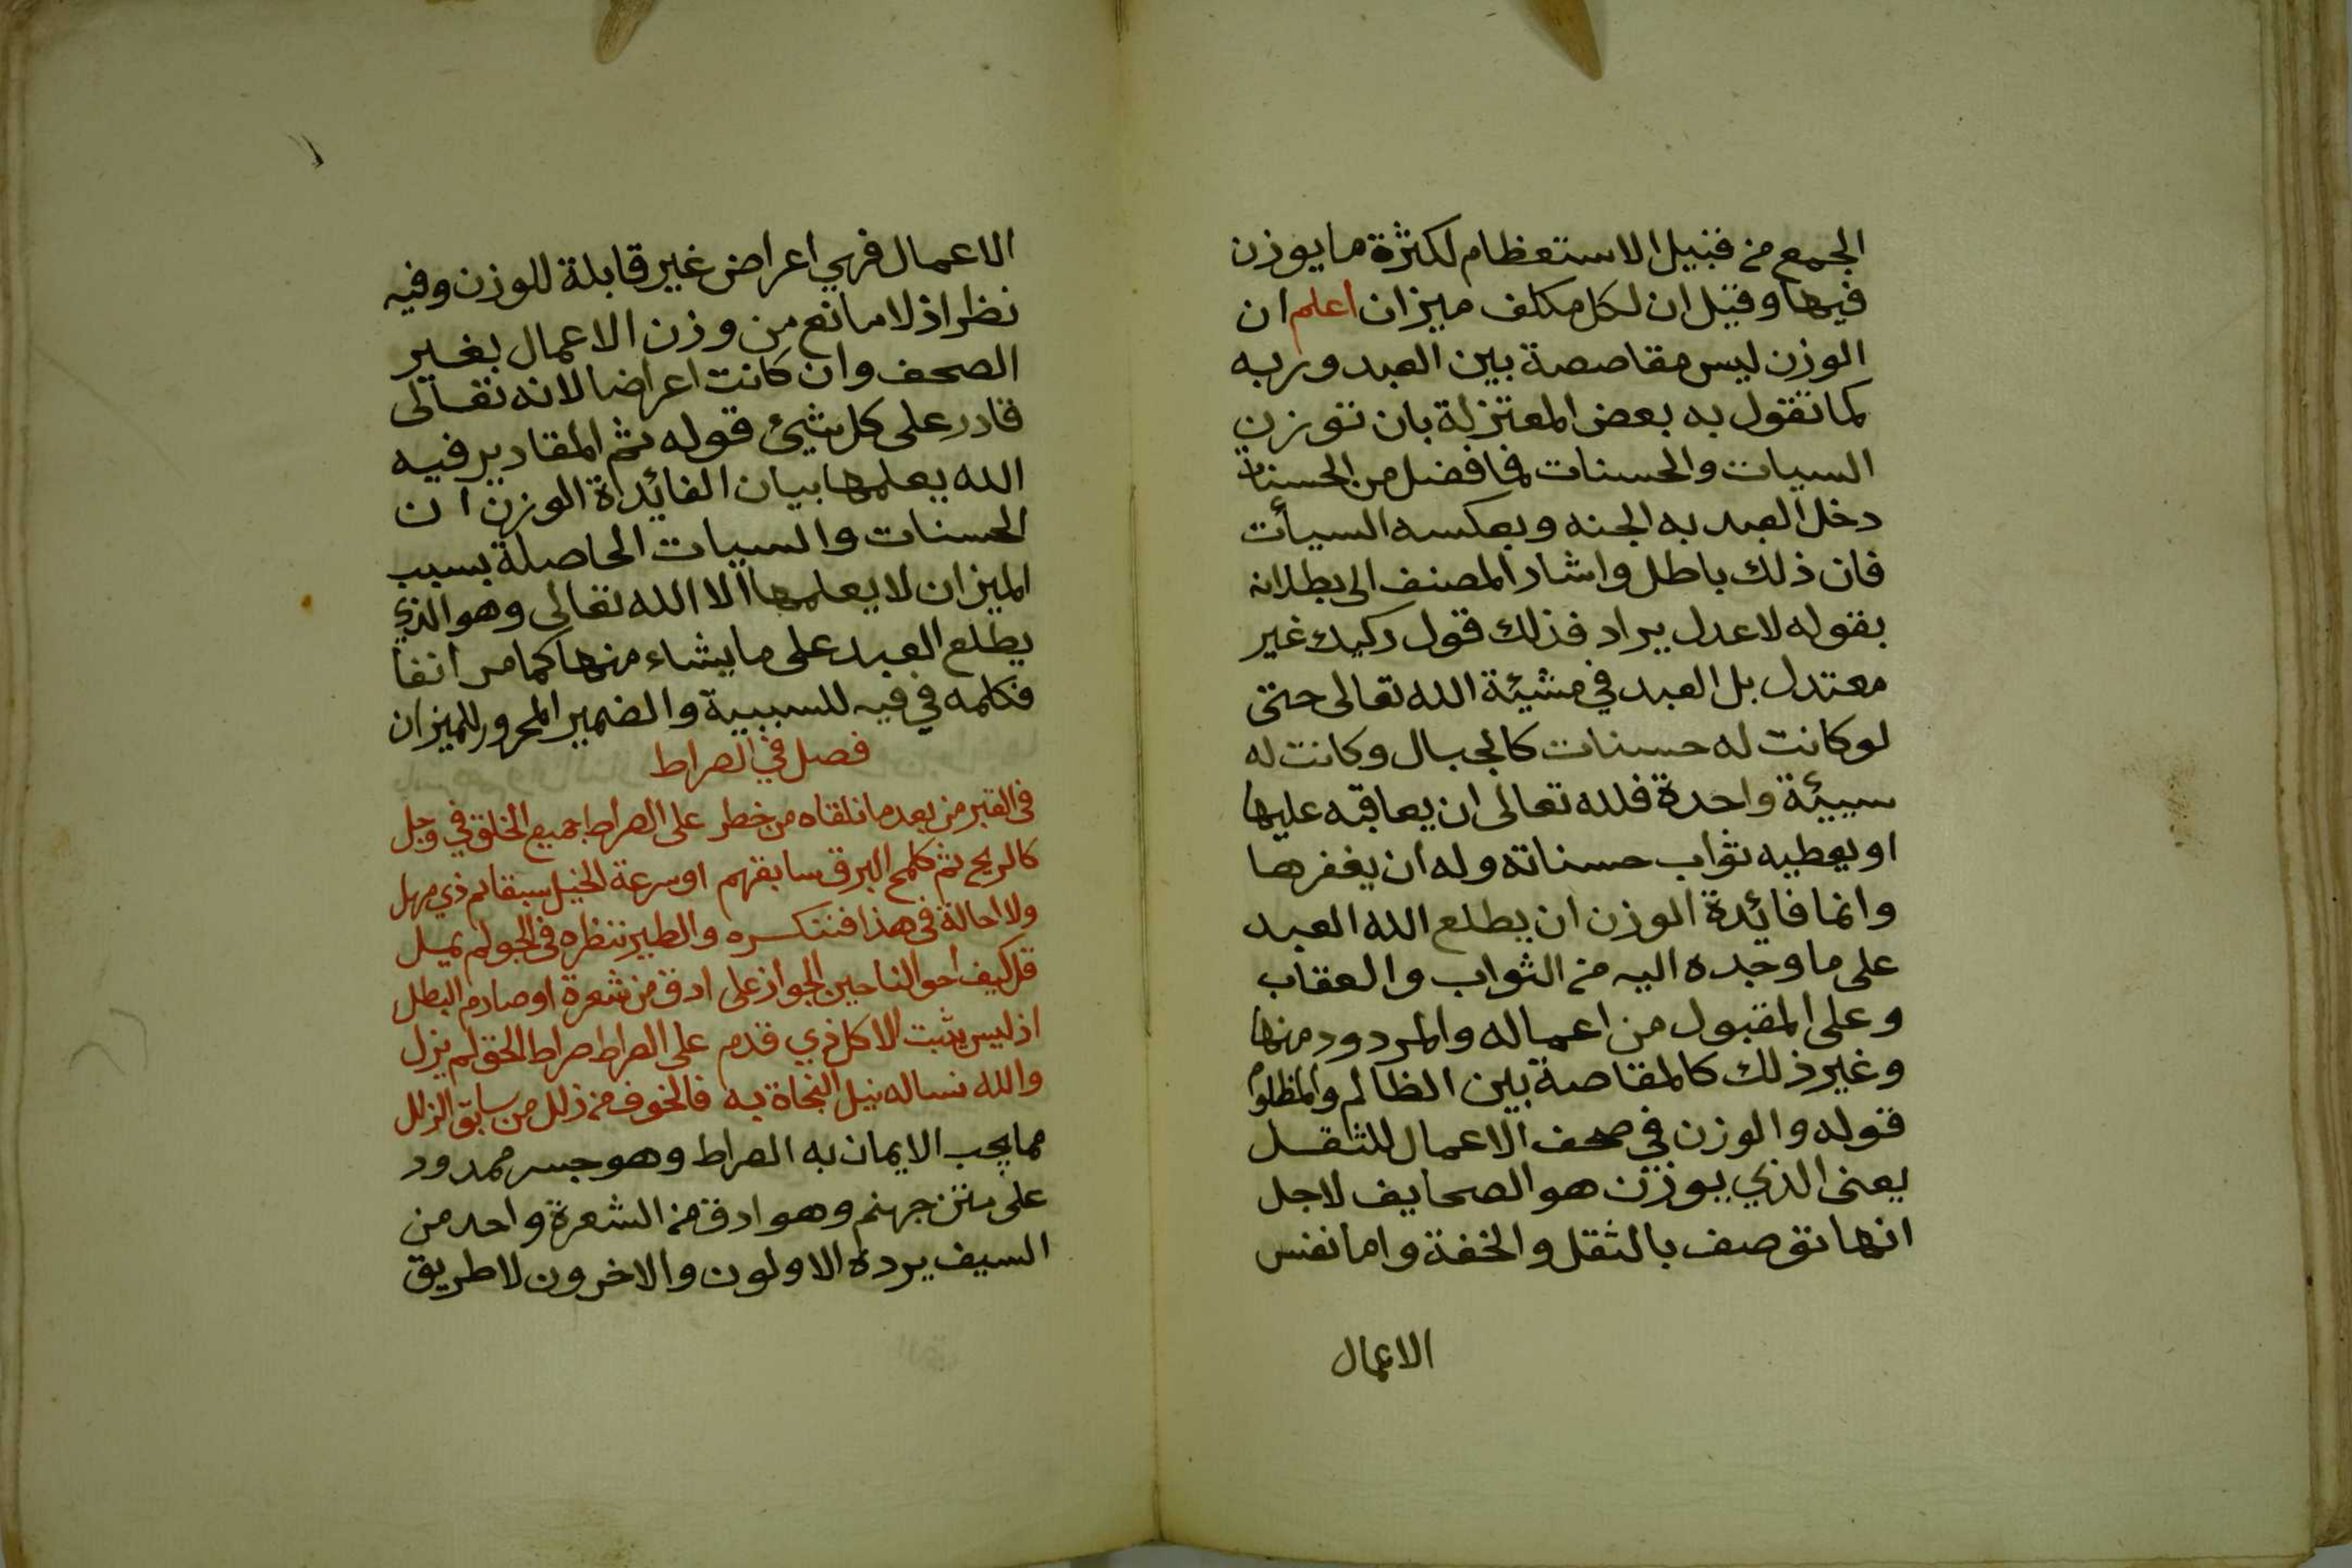 الجمع من قبيل الاستعظام لكثرة ما يوزن
فيها وقيل ان لكل مكلف ميزان اعلم ان
الوزن ليس مقاصصة بين العبد وربه
كما تقول به بعض المعتزلة بان توزن
السيات والحسنات فما فضل من الحسنات
دخل العبد به الجنه وبعكسه السيأت
فان ذلك باطل واشار المصنف الى بطلانه
بقوله لا عدل يراد فذلك قول ركيك غير
معتدل بل العبد في مشيئة الله تعالى حتى
لو كانت له حسنات كالجبال وكانت له
سييئة واحدة فلله تعالى ان يعاقبه عليها
او يعطيه ثواب حسناته وله ان يغفرها
وانما فائدة الوزن ان يطلع الله العبد
على ما وجده اليه من الثواب والعقاب
وعلى المقبول من اعماله والمردود منها
وغير ذلك كالمقاصة بين الظالم والمظلوم
قوله والوزن في صحف الاعمال للثقل
يعنى الذي يوزن هو الصحايف لاجل
انها توصف بالثقل والخفة واما نفس
الاعمال
الاعمال فهي اعراض غير قابلة للوزن وفيه
نظر اذ لا مانع من وزن الاعمال بغير
الصحف وان كانت اعراضا لانه تعالى
قادر على كل شيئ قوله ثم المقادير فيه
الله يعلمها بيان الفائدة الوزن ان
الحسنات والسيات الحاصلة بسبب
الميزان لا يعلمها الا الله تعالى وهو الذي
يطلع العبد على ما يشاء منها كما مر انفا
فكلمه في فيه للسببية والضمير المجرور للميزان
فصل في الصراط
فى القبر من بعد ما نلقاه من خطر على الصراط جميع الخلق في وجل
كالريح ثم كلمح البرق سابقهم او سرعة الخيل سبقا لم ذي مهل
ولا احالة فى هذا فنتكسره والطير ننظره فى الجو لم يميل
قل كيف احو الناجين الجواز على ادق من شعرة او صارم البطل
اذ ليس يثبت الا كل ذي قدم على الصراط صراط الحق لم يزل
والله نساله نيل النجاة به فالخوف من زلل من سابق الزلل
مما يجب الايمان به الصراط وهو جسر ممدود
على متن جهنم وهو ادق من الشعرة واحد من
السيف يرده الاولون والاخرون لا طريق